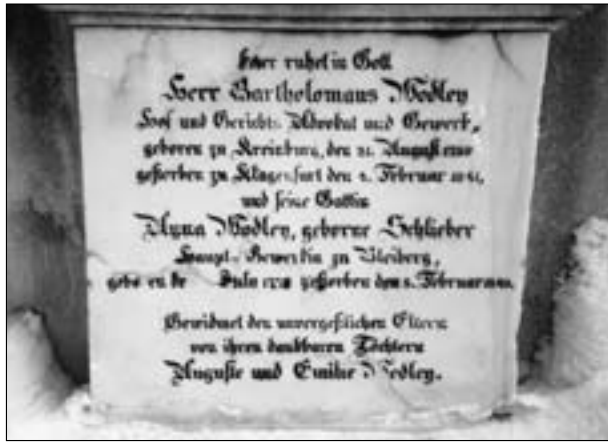 Hier ruhet in Gott
Herr Bartholomäus Modley
Hof und Gerichts Advokat und Gewerk,
geboren zu Krainburg, den 21. August
gestorben zu Klagenfurt den 2. Februar
und seine Gattin
Anna Modley, geborne Schlieber
Haupt-Gewerkin zu Bleiberg,
gestorben den 8. Februar
Gewidmet den unvergeßlichen Eltern
von ihren dankbaren Töchtern
Auguste und Emilie Modley.